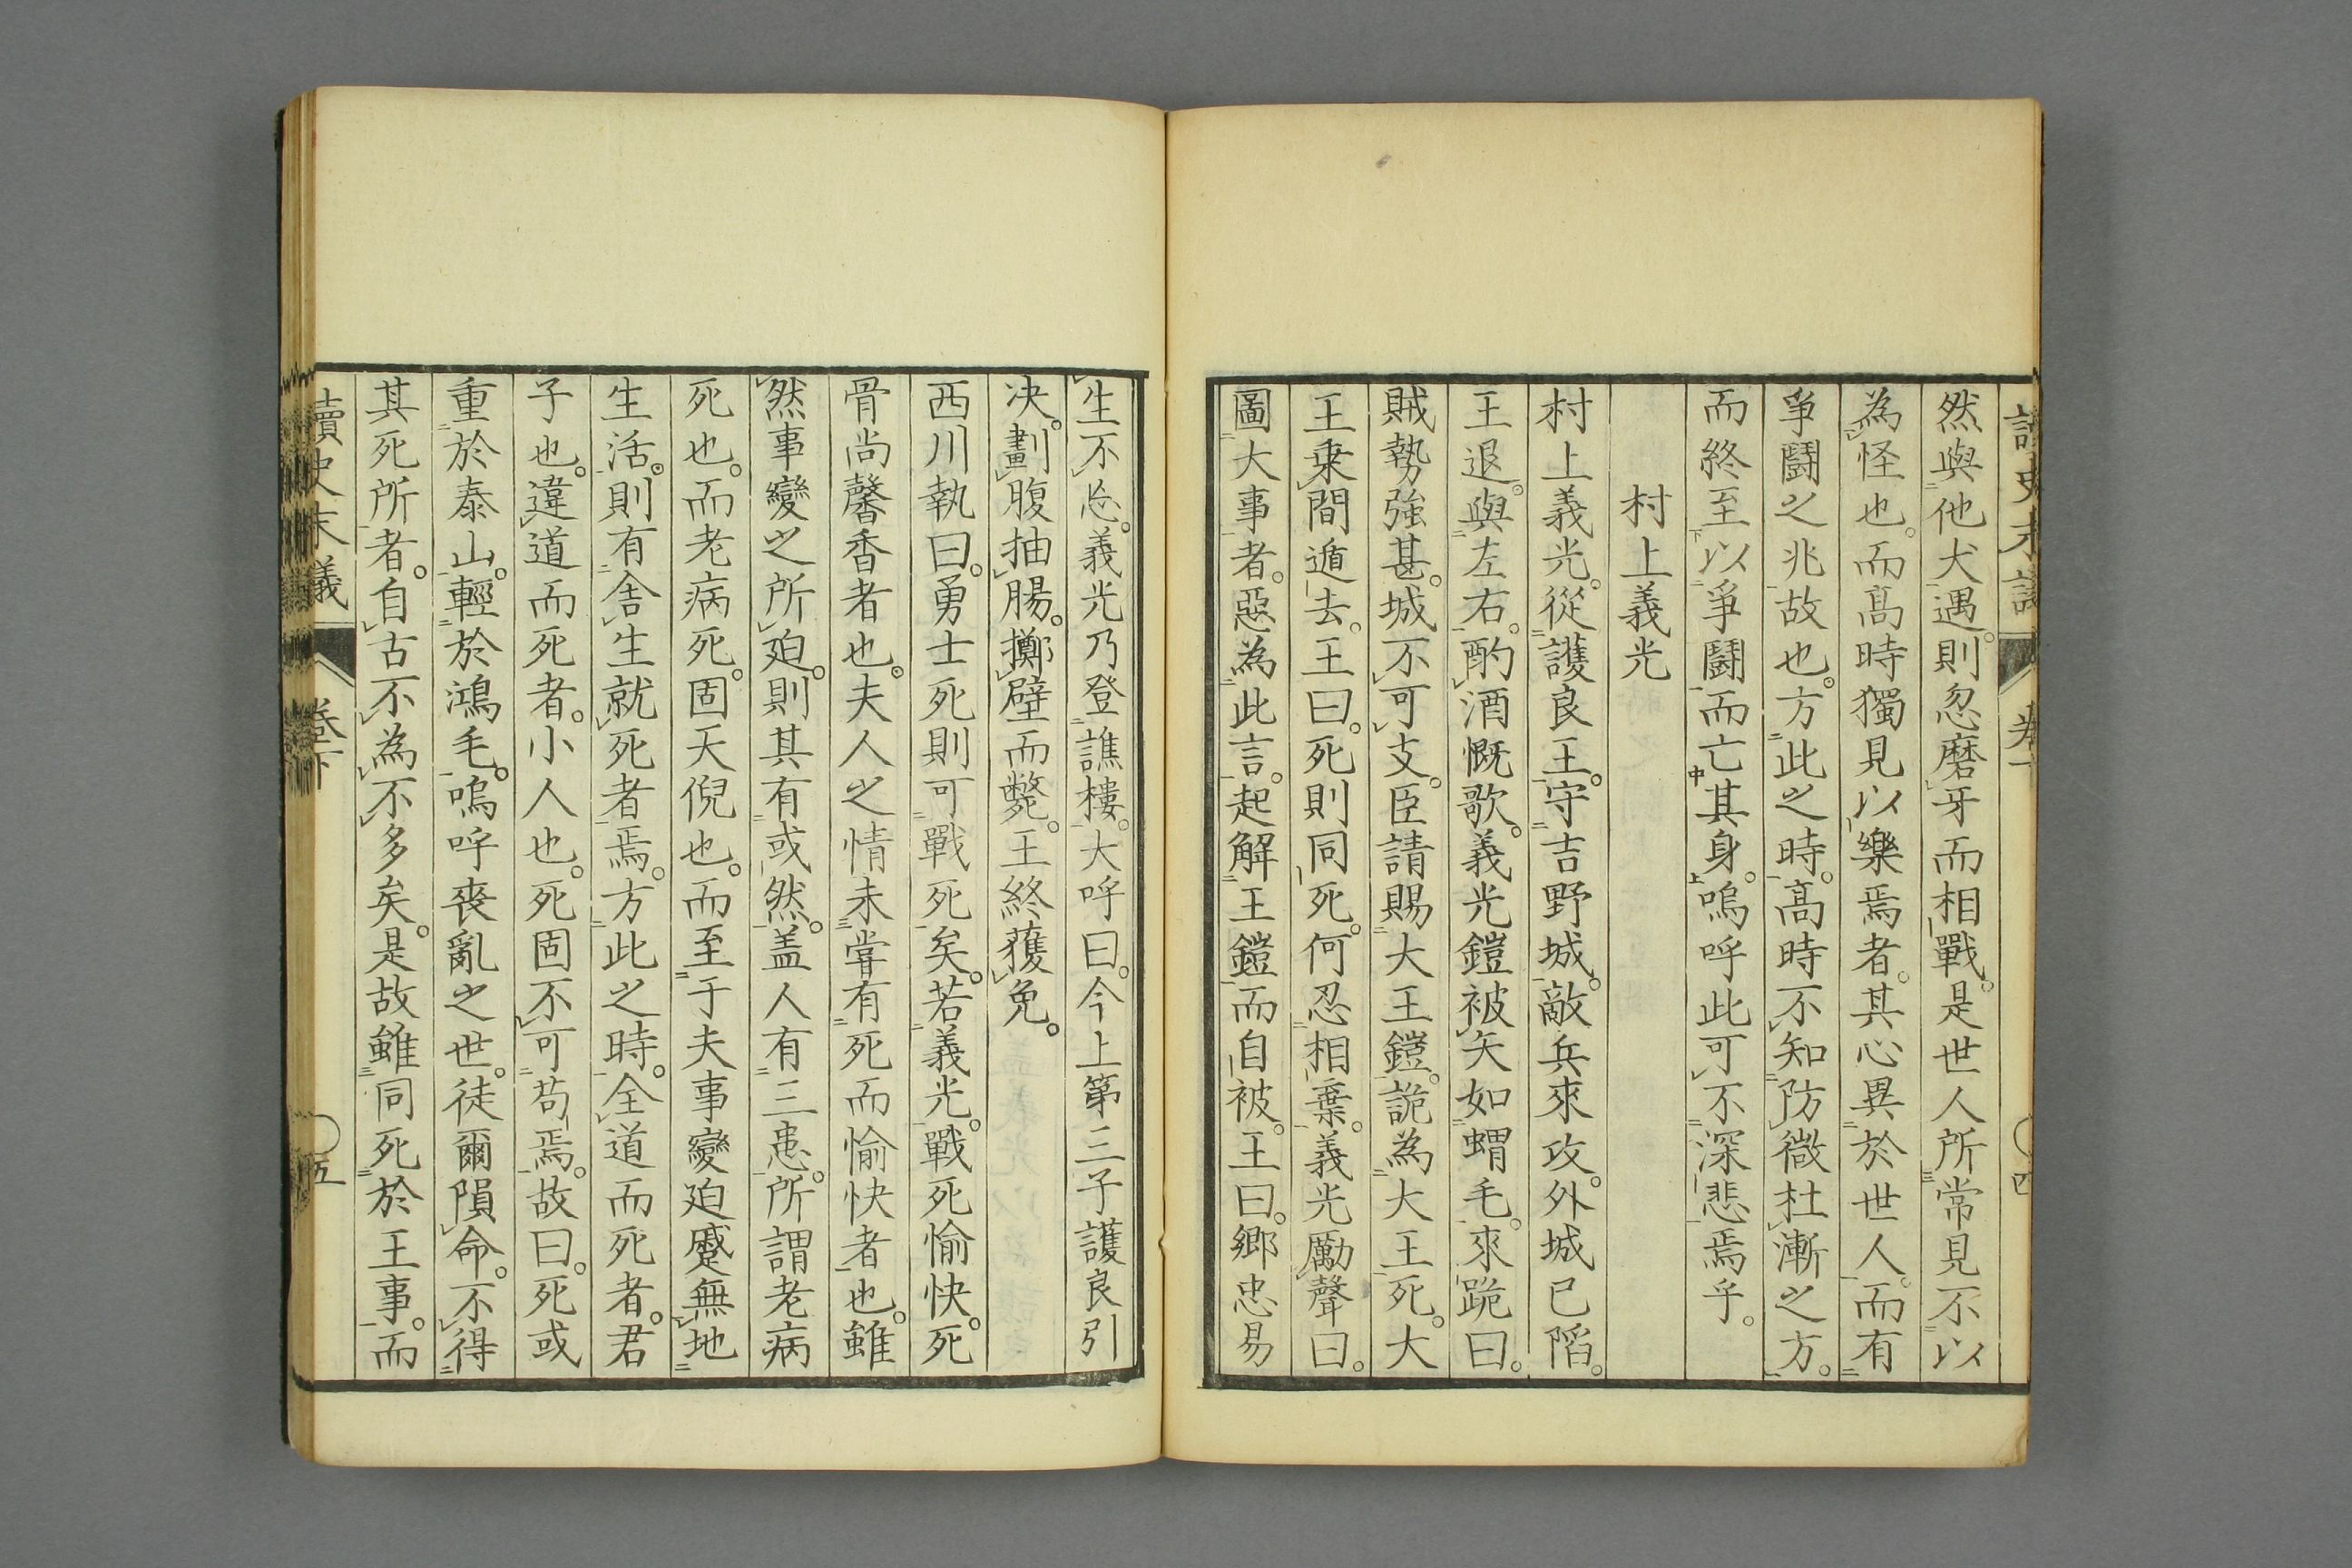 然與他犬遇。則忽磨牙而相戰。是世人所常見不以
為怪也。而髙時獨見以樂焉者。其心異於世人。而有
爭鬪之兆故也。方此之時。髙時不知防微杜漸之方。
而終至以爭鬪而亡其身。嗚呼此可不深悲焉乎。
村上義光
村上義光。從護良王。守吉野城。敵兵來攻。外城已陷。
王退。與左右。酌酒慨歌。義光鎧被矢如蝟毛。來跪曰。
賊勢強甚。城不可支。臣請賜大王鎧。詭為大王死。大
王乗間遁去。王曰。死則同死。何忍相棄。義光勵聲曰。
圖大事者。惡為此言。起解王鎧而自被。王曰。鄉忠易
生不忘。義光乃登譙樓。大呼曰。今上第三子護良引
决。劃腹抽腸。擲壁而斃。王終獲免。
西川執曰。勇士死則可戰死矣。若義光。戰死愉快。死
骨尚馨香者也。夫人之情未甞有死而愉快者也。雖
然事變之所廹。則其有或然。盖人有三患。所謂老病
死也。而老病死。固天倪也。而至于夫事變廹蹙無地
生活。則有舎生就死者焉。方此之時。全道而死者。君
子也。違道而死者。小人也。死固不可苟焉。故曰。死或
重於泰山。輕於鴻毛。嗚呼喪亂之世。徒爾隕命。不得
其死所者。自古不為不多矣。是故雖同死於王事。而
讀史末議 卷下 五